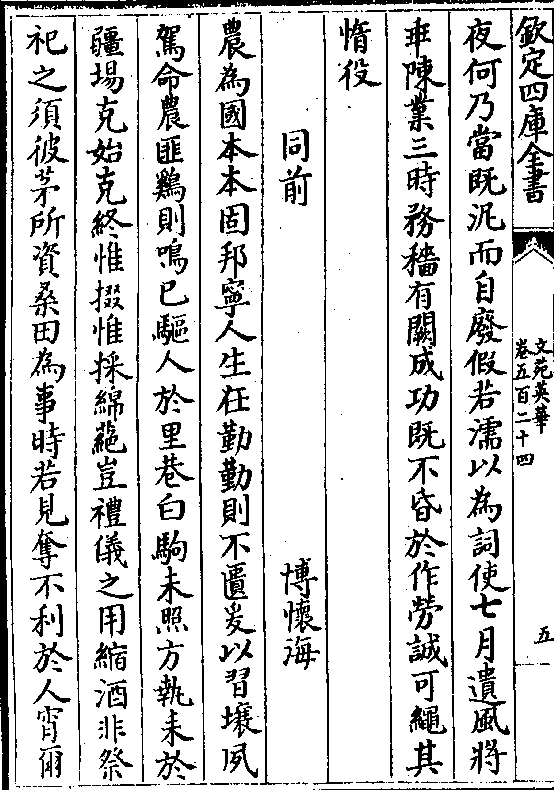 欽定四庫全書
文苑英華
卷五百二十四
五
夜何乃當既汎而自廢假若濡以為詞使七月遺風將
乖陳業三時務穡有闕成功既不昏於作勞誠可繩其
惰役
同前 博懷海
農為國本本固邦寧人生在勤勤則不匱爰以習壤夙
駕命農匪鷄則鳴已驅人於里巷白駒未照方執耒於
疆埸克始克終惟掇惟採綿蕝豈禮儀之用縮酒非祭
祀之須彼茅所資桑田為事時若見奪不利於人宵爾